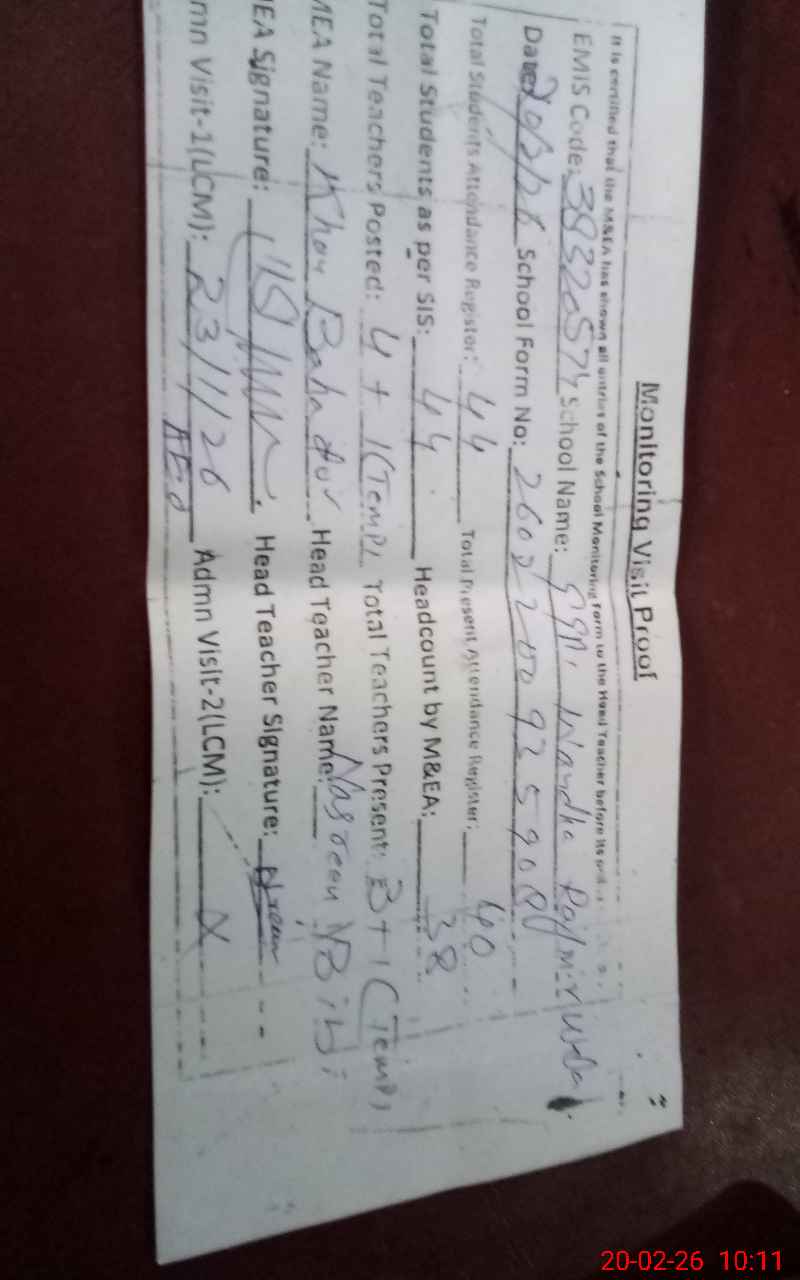 Monitoring Visit Proof
It is certified that the M&EA has shown all entries of the School Monitoring Form to the Head Teacher before its
EMIS Code: 38320574 School Name: Wandha
Date: 20/2/26 School Form No:
Total Students Attendance Register: 44 Total Present Attendance Register: 40
Total Students as per SIS: 44 Headcount by M&EA: 38
Total Teachers Posted: 4 + 1(Temp) Total Teachers Present: 3+1(Temp)
MEA Name: Khan Bahadur Head Teacher Name: Nasreen Bibi
EA Signature: Head Teacher Signature:
mn Visit-1(LCM): 23/1/26 Admn Visit-2(LCM): X
AEO
20-02-26 10:11